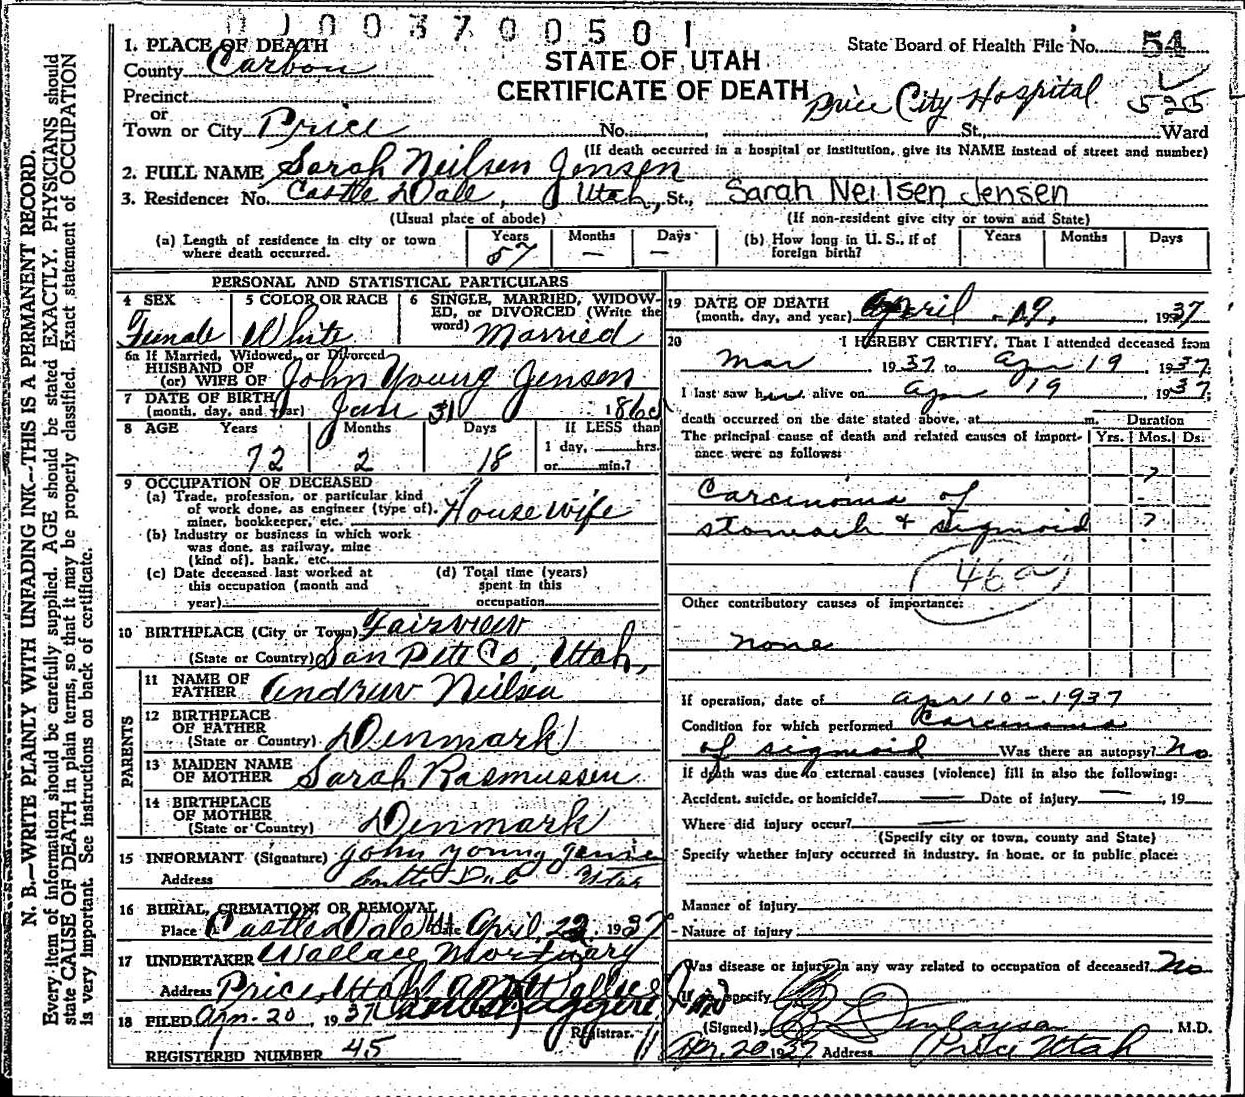 01003700501
1. PLACE OF DEATH
County Carbon
STATE OF UTAH
CERTIFICATE OF DEATH
State Board of Health File No. 54
Precinct
or
Town or City Price
Price City Hospital
525
No. , St., Ward
(If death occurred in a hospital or institution, give its NAME instead of street and number)
2. FULL NAME Sarah Neilsen Jensen
3. Residence: No. Castle Dale, Utah, St., Sarah Neilsen Jensen
(Usual place of abode)
(If non-resident give city or town and State)
(a) Length of residence in city or town where death occurred.
Years 57 Months — Days —
(b) How long in U. S., if of foreign birth?
Years Months Days
PERSONAL AND STATISTICAL PARTICULARS
4 SEX
Female
5 COLOR OR RACE
White
6 SINGLE, MARRIED, WIDOWED, or DIVORCED (Write the word) Married
6a If Married, Widowed, or Divorced
HUSBAND OF
(or) WIFE OF John Young Jensen
7 DATE OF BIRTH
(month, day, and year) Jan 31 186
8 AGE Years Months Days
72 2 18
If LESS than
1 day, hrs.
or min.?
9 OCCUPATION OF DECEASED
(a) Trade, profession, or particular kind
of work done, as engineer (type of),
miner, bookkeeper, etc. Housewife
(b) Industry or business in which work
was done, as railway, mine
(kind of), bank, etc.
(c) Date deceased last worked at
this occupation (month and
year)
(d) Total time (years)
spent in this
occupation
10 BIRTHPLACE (City or Town) Fairview
(State or Country) San Pete Co, Utah,
PARENTS
11 NAME OF
FATHER Andrew Neilsen
12 BIRTHPLACE
OF FATHER
(State or Country) Denmark
13 MAIDEN NAME
OF MOTHER Sarah Rasmussen
14 BIRTHPLACE
OF MOTHER
(State or Country) Denmark
15 INFORMANT (Signature) John Young Jensen
Address Castle Dale Utah
16 BURIAL, CREMATION OR REMOVAL
Place Castle Dale Ut Date April, 22, 1937
17 UNDERTAKER Wallace Mortuary
Address Price, Utah
18 FILED Apr. 20, 1937
Registrar.
REGISTERED NUMBER 45
19 DATE OF DEATH
(month, day, and year) April - 19, 1937
20 I HEREBY CERTIFY, That I attended deceased from
Mar 1937 to Apr 19, 1937
I last saw her alive on Apr 19 1937;
death occurred on the date stated above, at m.
The principal cause of death and related causes of importance were as follows:
Duration
Yrs. Mos. Ds.
?
Carcinoma of
stomach + sigmoid ?
46a
Other contributory causes of importance:
none
If operation, date of Apr 10 - 1937
Condition for which performed Carcinoma
of sigmoid Was there an autopsy? No
If death was due to external causes (violence) fill in also the following:
Accident, suicide, or homicide? — Date of injury —, 19
Where did injury occur? —
(Specify city or town, county and State)
Specify whether injury occurred in industry, in home, or in public place:
Manner of injury
Nature of injury
Was disease or injury in any way related to occupation of deceased? No
If so, specify
(Signed) , M.D.
Apr. 20 1937 Address Price Utah
N. B.—WRITE PLAINLY WITH UNFADING INK—THIS IS A PERMANENT RECORD.
Every item of information should be carefully supplied. AGE should be stated EXACTLY. PHYSICIANS should
state CAUSE OF DEATH in plain terms, so that it may be properly classified. Exact statement of OCCUPATION
is very important. See instructions on back of certificate.